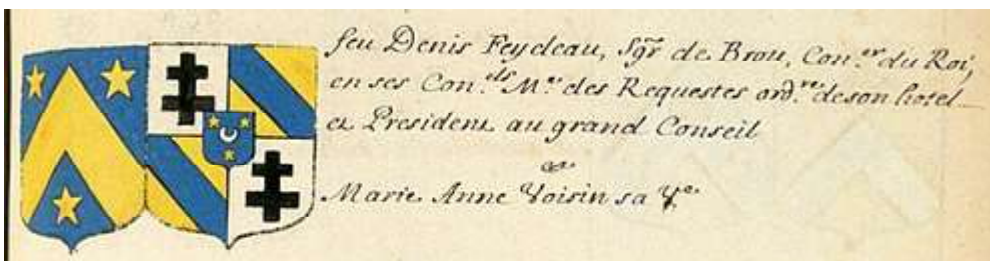 feu Denis Feydeau, Sgr. de Brou, Con.er du Roi,
en ses Con.els M.e des Requestes ord.re de son hotel
et President au grand Conseil
&
Marie Anne Voisin sa V.e